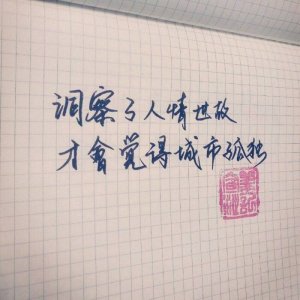 洞察了人情世故
才會覺得城市孤独